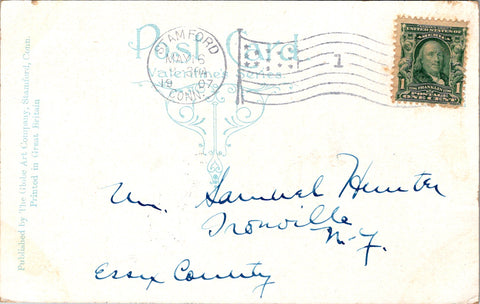 Post Card
Valentine's Series
STAMFORD
MAY 6
19 07
CONN.
1
UNITED STATES OF AMERICA
FRANKLIN
POSTAGE
1 ONE CENT 1
Samuel Hunter
Ironville
N.Y.
Essex County
Published by The Globe Art Company, Stamford, Conn.
Printed in Great Britain